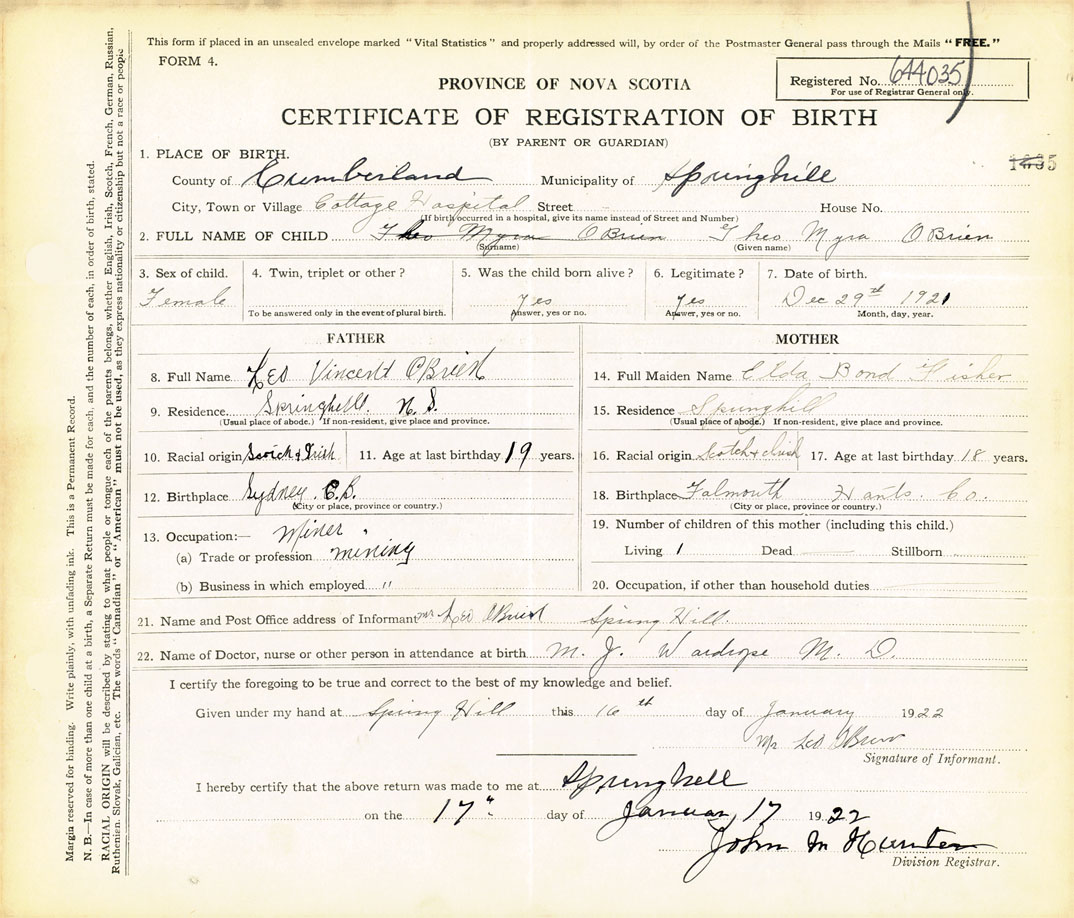 This form if placed in an unsealed envelope marked "Vital Statistics" and properly addressed will, by order of the Postmaster General pass through the Mails "FREE."
FORM 4.
Registered No. 644035
For use of Registrar General only.
PROVINCE OF NOVA SCOTIA
CERTIFICATE OF REGISTRATION OF BIRTH
(BY PARENT OR GUARDIAN)
1. PLACE OF BIRTH.
County of Cumberland Municipality of Springhill
City, Town or Village Cottage Hospital Street House No.
(If birth occurred in a hospital, give its name instead of Street and Number)
2. FULL NAME OF CHILD Theo Myra OBrien Theo Myra OBrien
(Surname) (Given name)
3. Sex of child. 4. Twin, triplet or other? 5. Was the child born alive? 6. Legitimate? 7. Date of birth.
Female Yes Yes Dec 29th 1921
To be answered only in the event of plural birth. Answer, yes or no. Answer, yes or no. Month, day, year.
FATHER
8. Full Name Leo Vincent OBrien
9. Residence Springhill. N. S.
(Usual place of abode.) If non-resident, give place and province.
10. Racial origin Scotch & Irish 11. Age at last birthday 19 years.
12. Birthplace Sydney. C.B.
(City or place, province or country.)
13. Occupation:— Miner
(a) Trade or profession mining
(b) Business in which employed "
MOTHER
14. Full Maiden Name Elda Bond Fisher
15. Residence Springhill
(Usual place of abode.) If non-resident, give place and province.
16. Racial origin Scotch & Irish 17. Age at last birthday 18 years.
18. Birthplace Falmouth Hants. Co.
(City or place, province or country.)
19. Number of children of this mother (including this child.)
Living 1 Dead Stillborn
20. Occupation, if other than household duties
21. Name and Post Office address of Informant Mr Leo OBrien Spring Hill.
22. Name of Doctor, nurse or other person in attendance at birth M. J. Wardrope M. D.
I certify the foregoing to be true and correct to the best of my knowledge and belief.
Given under my hand at Spring Hill this 16th day of January 1922
Mr Leo OBrien
Signature of Informant.
I hereby certify that the above return was made to me at Springhill
on the 17" day of January 17 1922
John M Hunter
Division Registrar.
Margin reserved for binding. Write plainly, with unfading ink. This is a Permanent Record.
N. B.—In case of more than one child at a birth, a Separate Return must be made for each, and the number of each, in order of birth, stated.
RACIAL ORIGIN will be described by stating to what people or tongue each of the parents belongs, whether English, Irish, Scotch, French, German, Russian,
Ruthenian, Slovak, Galician, etc. The words "Canadian" or "American" must not be used, as they express nationality or citizenship but not a race or people